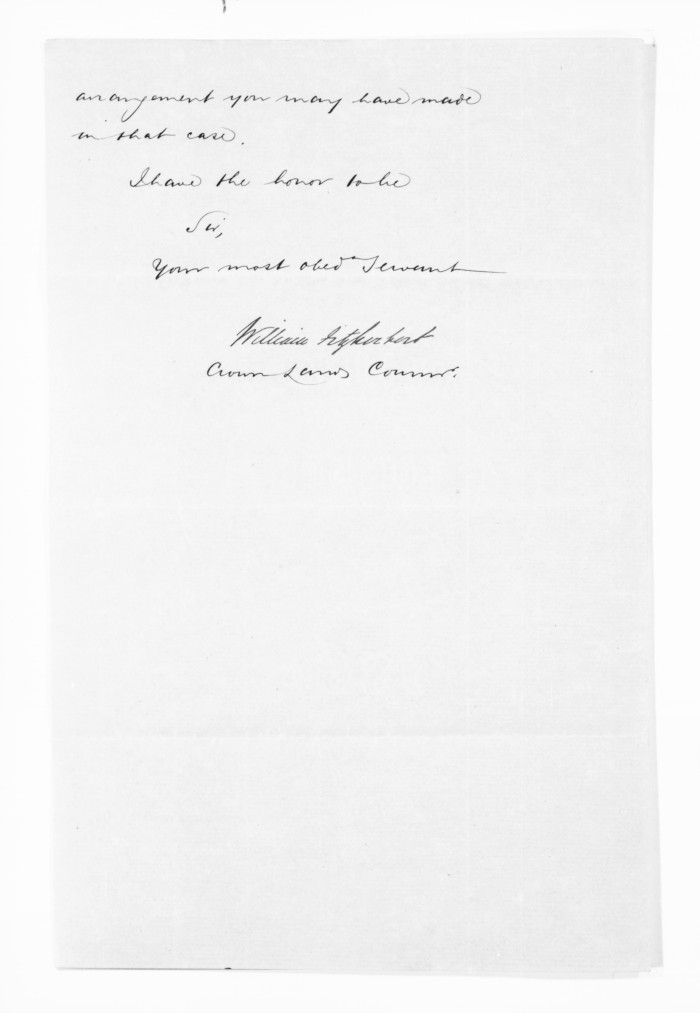 arrangement you may have made
in that case.
I have the honor to be
Sir,
Your most obedt Servant
William Fitzherbert
Crown Lands Commr.